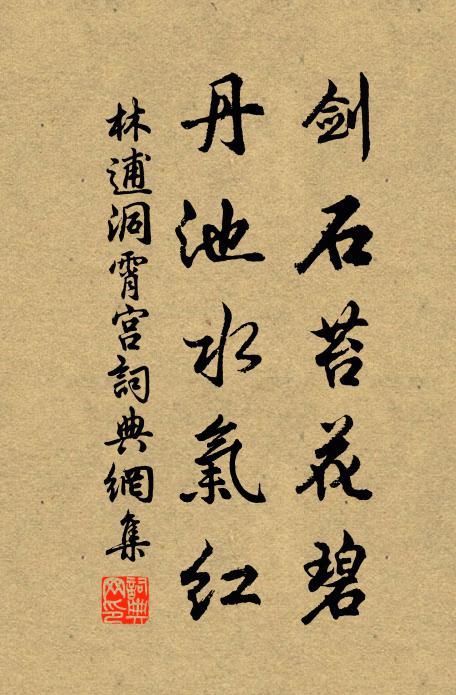 劍石苔花碧
丹池水氣紅
林逋洞霄宮詞典網集
詞典網印